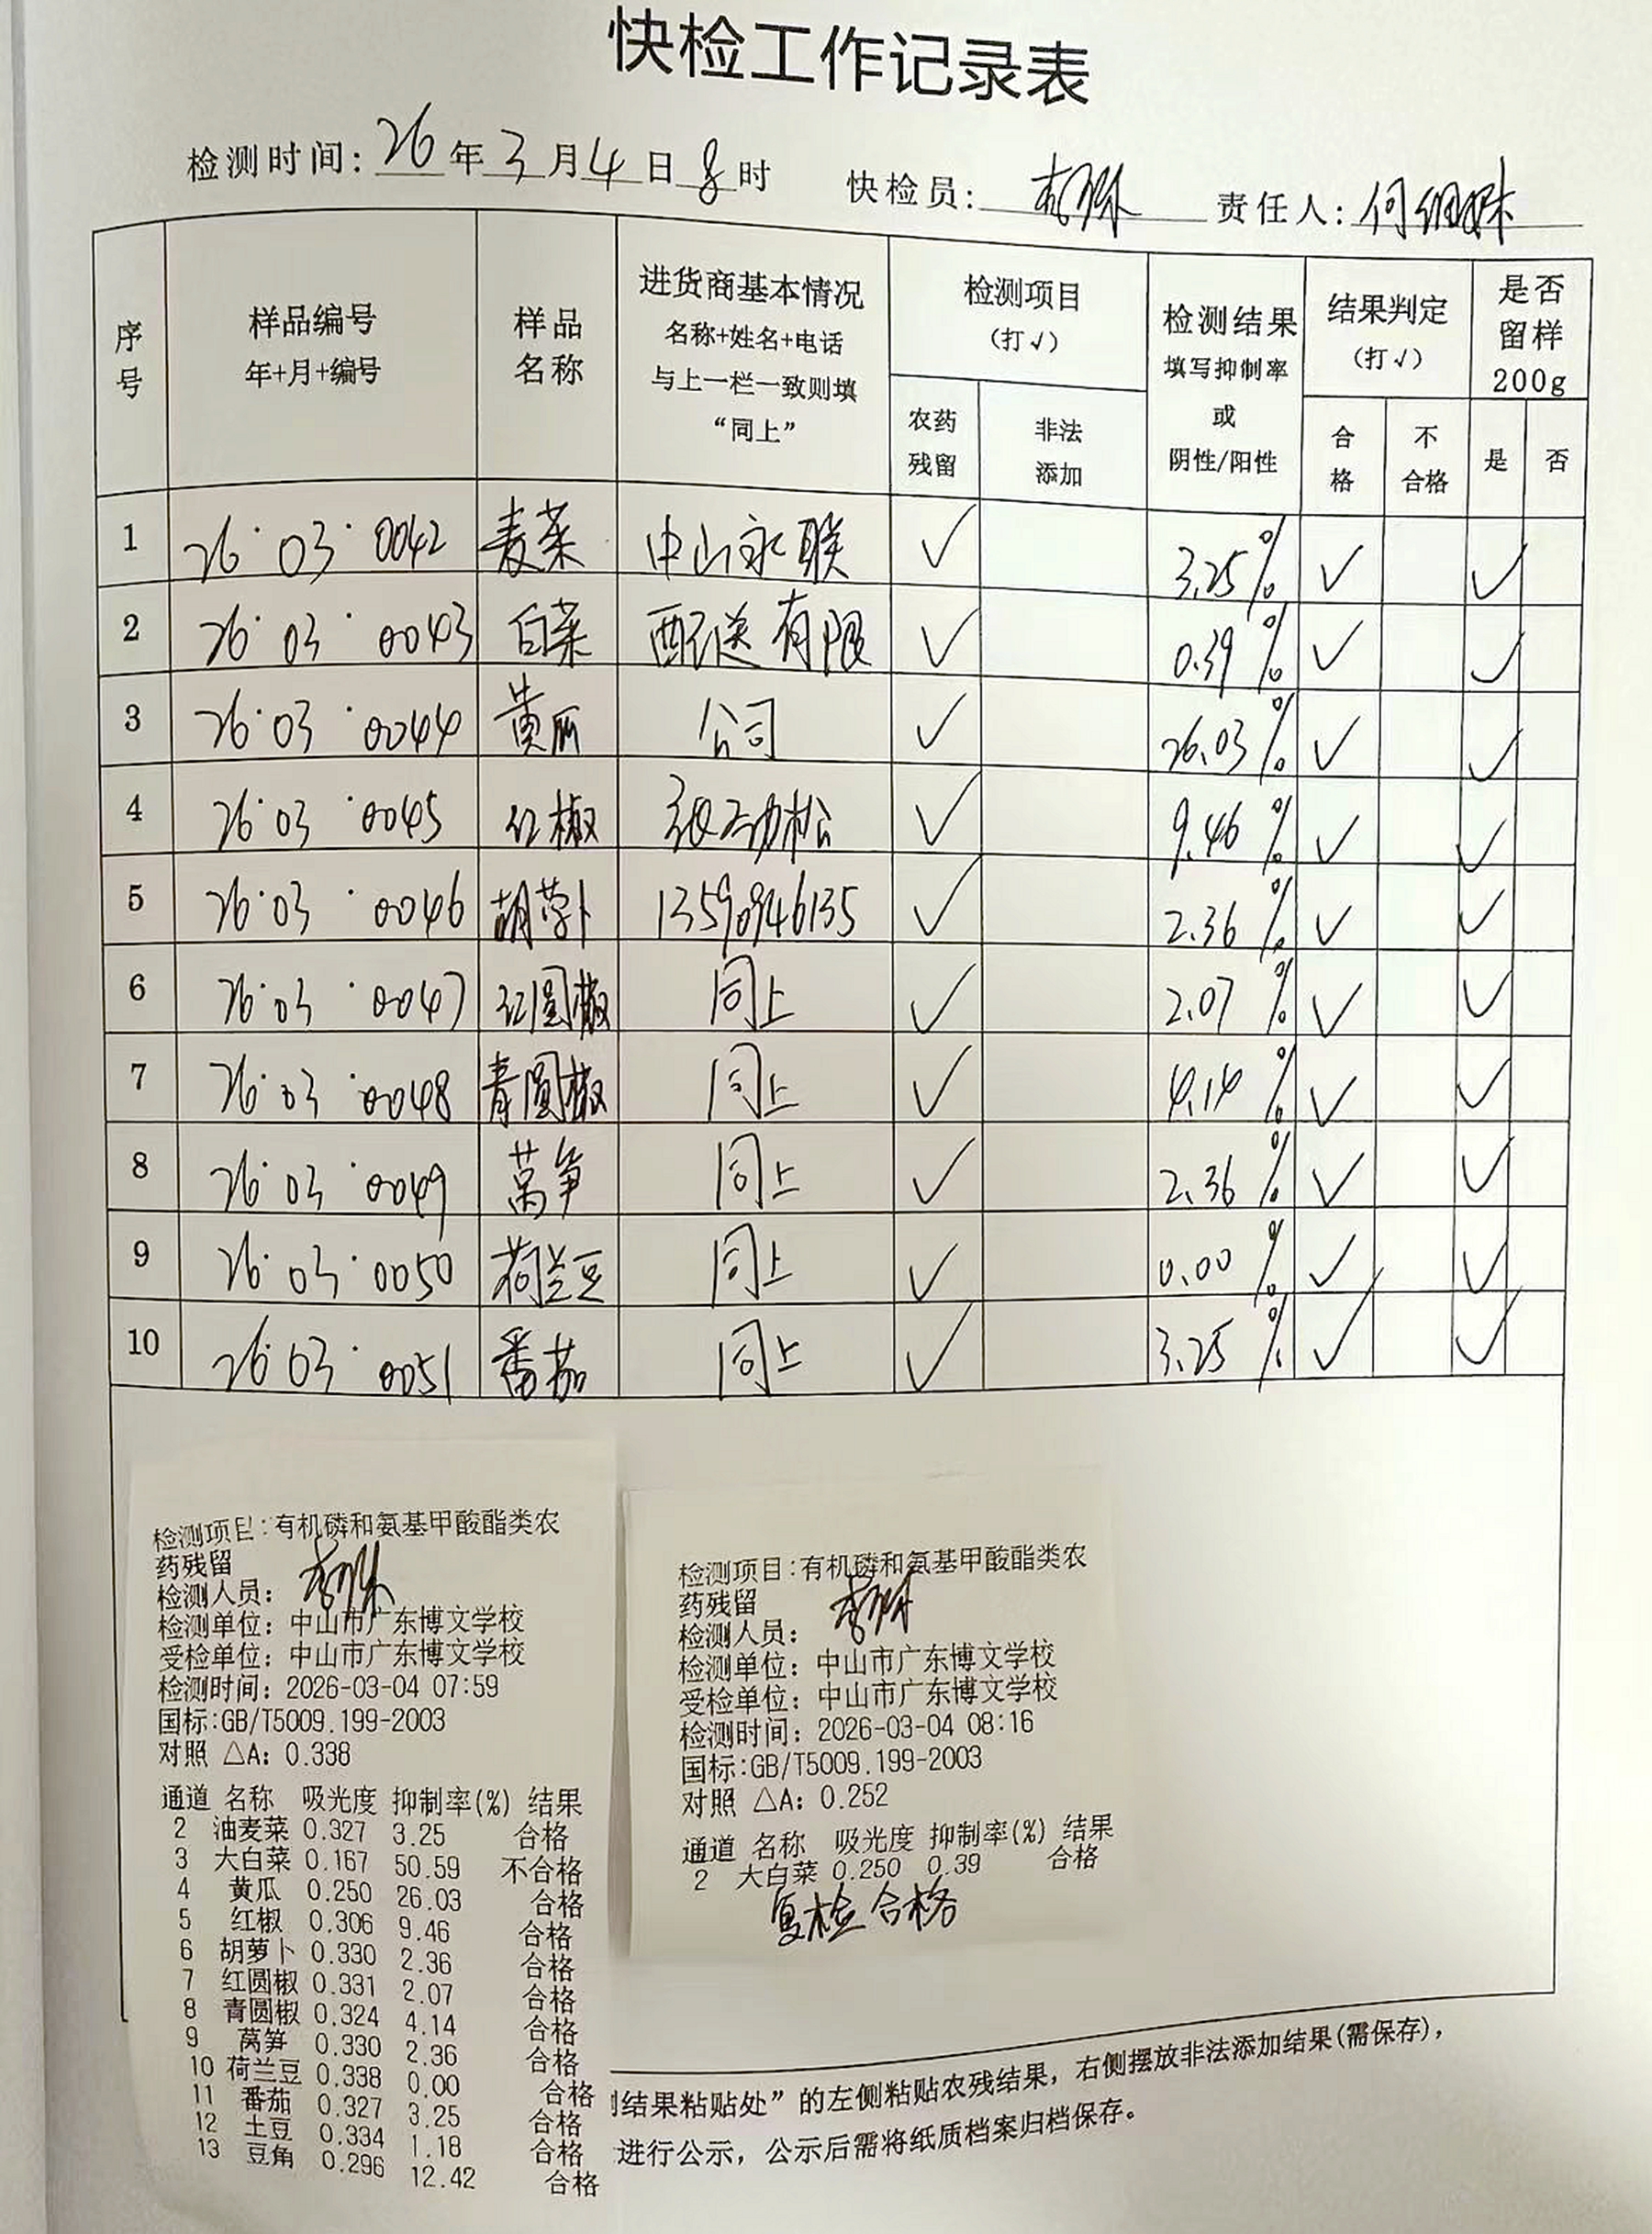 快检工作记录表
检测时间: 26年3月4日8时 快检员: 责任人: 何细妹
序号 样品编号 年+月+编号 样品名称 进货商基本情况 名称+姓名+电话 与上一栏一致则填“同上” 检测项目 (打√) 检测结果 填写抑制率 或 阴性/阳性 结果判定 (打√) 是否留样200g
农药残留 非法添加 合格 不合格 是 否
1 26·03·0042 麦菜 中山永联 √ 3.25% √ √
2 26·03·0043 白菜 配送有限 √ 0.39% √ √
3 26·03·0044 黄瓜 公司 √ 26.03% √ √
4 26·03·0045 红椒 张劲松 √ 9.46% √ √
5 26·03·0046 胡萝卜 13590946135 √ 2.36% √ √
6 26·03·0047 红圆椒 同上 √ 2.07% √ √
7 26·03·0048 青圆椒 同上 √ 4.14% √ √
8 26·03·0049 莴笋 同上 √ 2.36% √ √
9 26·03·0050 荷兰豆 同上 √ 0.00% √ √
10 26·03·0051 番茄 同上 √ 3.25% √ √
检测项目:有机磷和氨基甲酸酯类农
药残留
检测人员:
检测单位: 中山市广东博文学校
受检单位: 中山市广东博文学校
检测时间: 2026-03-04 07:59
国标:GB/T5009.199-2003
对照 △A: 0.338
通道 名称 吸光度 抑制率(%) 结果
2 油麦菜 0.327 3.25 合格
3 大白菜 0.167 50.59 不合格
4 黄瓜 0.250 26.03 合格
5 红椒 0.306 9.46 合格
6 胡萝卜 0.330 2.36 合格
7 红圆椒 0.331 2.07 合格
8 青圆椒 0.324 4.14 合格
9 莴笋 0.330 2.36 合格
10 荷兰豆 0.338 0.00 合格
11 番茄 0.327 3.25 合格
12 土豆 0.334 1.18 合格
13 豆角 0.296 12.42 合格
检测项目:有机磷和氨基甲酸酯类农
药残留
检测人员:
检测单位: 中山市广东博文学校
受检单位: 中山市广东博文学校
检测时间: 2026-03-04 08:16
国标:GB/T5009.199-2003
对照 △A: 0.252
通道 名称 吸光度 抑制率(%) 结果
2 大白菜 0.250 0.39 合格
复检合格
结果粘贴处”的左侧粘贴农残结果，右侧摆放非法添加结果(需保存)，
进行公示，公示后需将纸质档案归档保存。